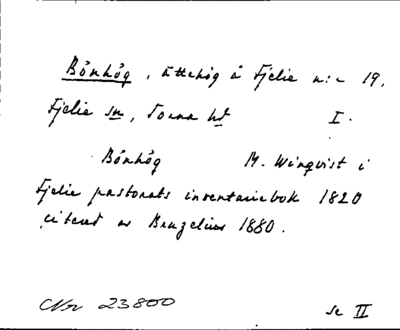 Bönhög, ättehög å Fjelie n:r 19.
Fjelie sn, Torna hd I.
Bönhög M. Winqvist i
Fjelie pastorats inventariebok 1820
citerad av Bruzelius 1880.
Nr 23800
se II